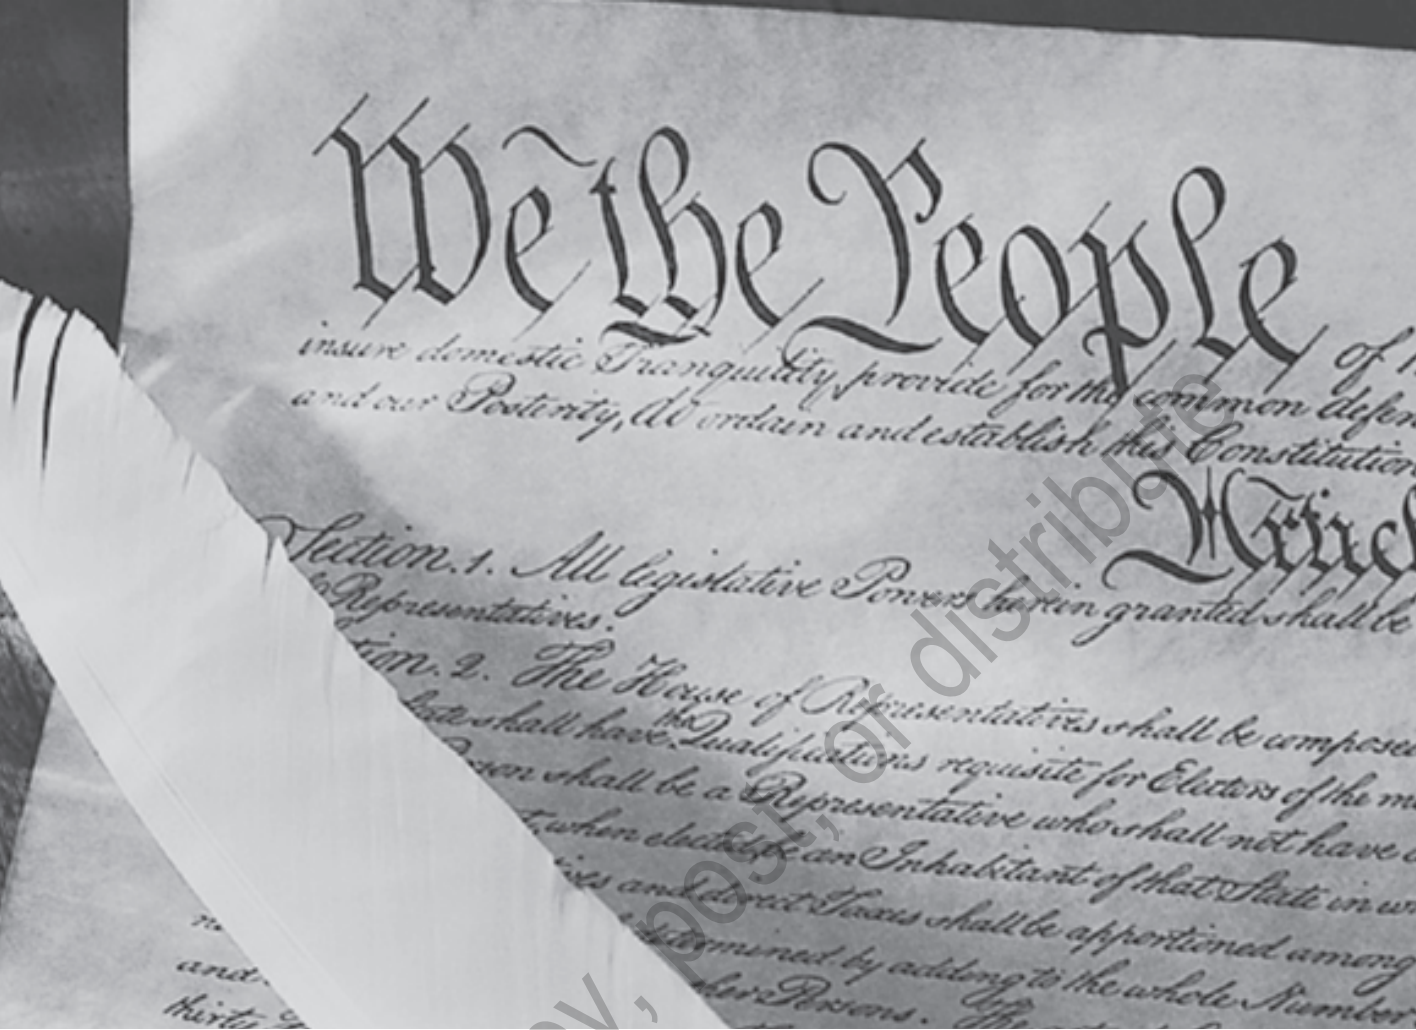 We the People of
insure domestic Tranquility, provide for the common defen
and our Posterity, do ordain and establish this Constitution
Articl
Section. 1. All legislative Powers herein granted shall be
Representatives.
tion. 2. The House of Representatives shall be composed
State shall have the Qualifications requisite for Electors of the m
erson shall be a Representative who shall not have
t, when elected, be an Inhabitant of that State in w
ives and direct Taxes shall be apportioned among
determined by adding to the whole Number
ther Persons. The
and
thirty
py, post, or distribute